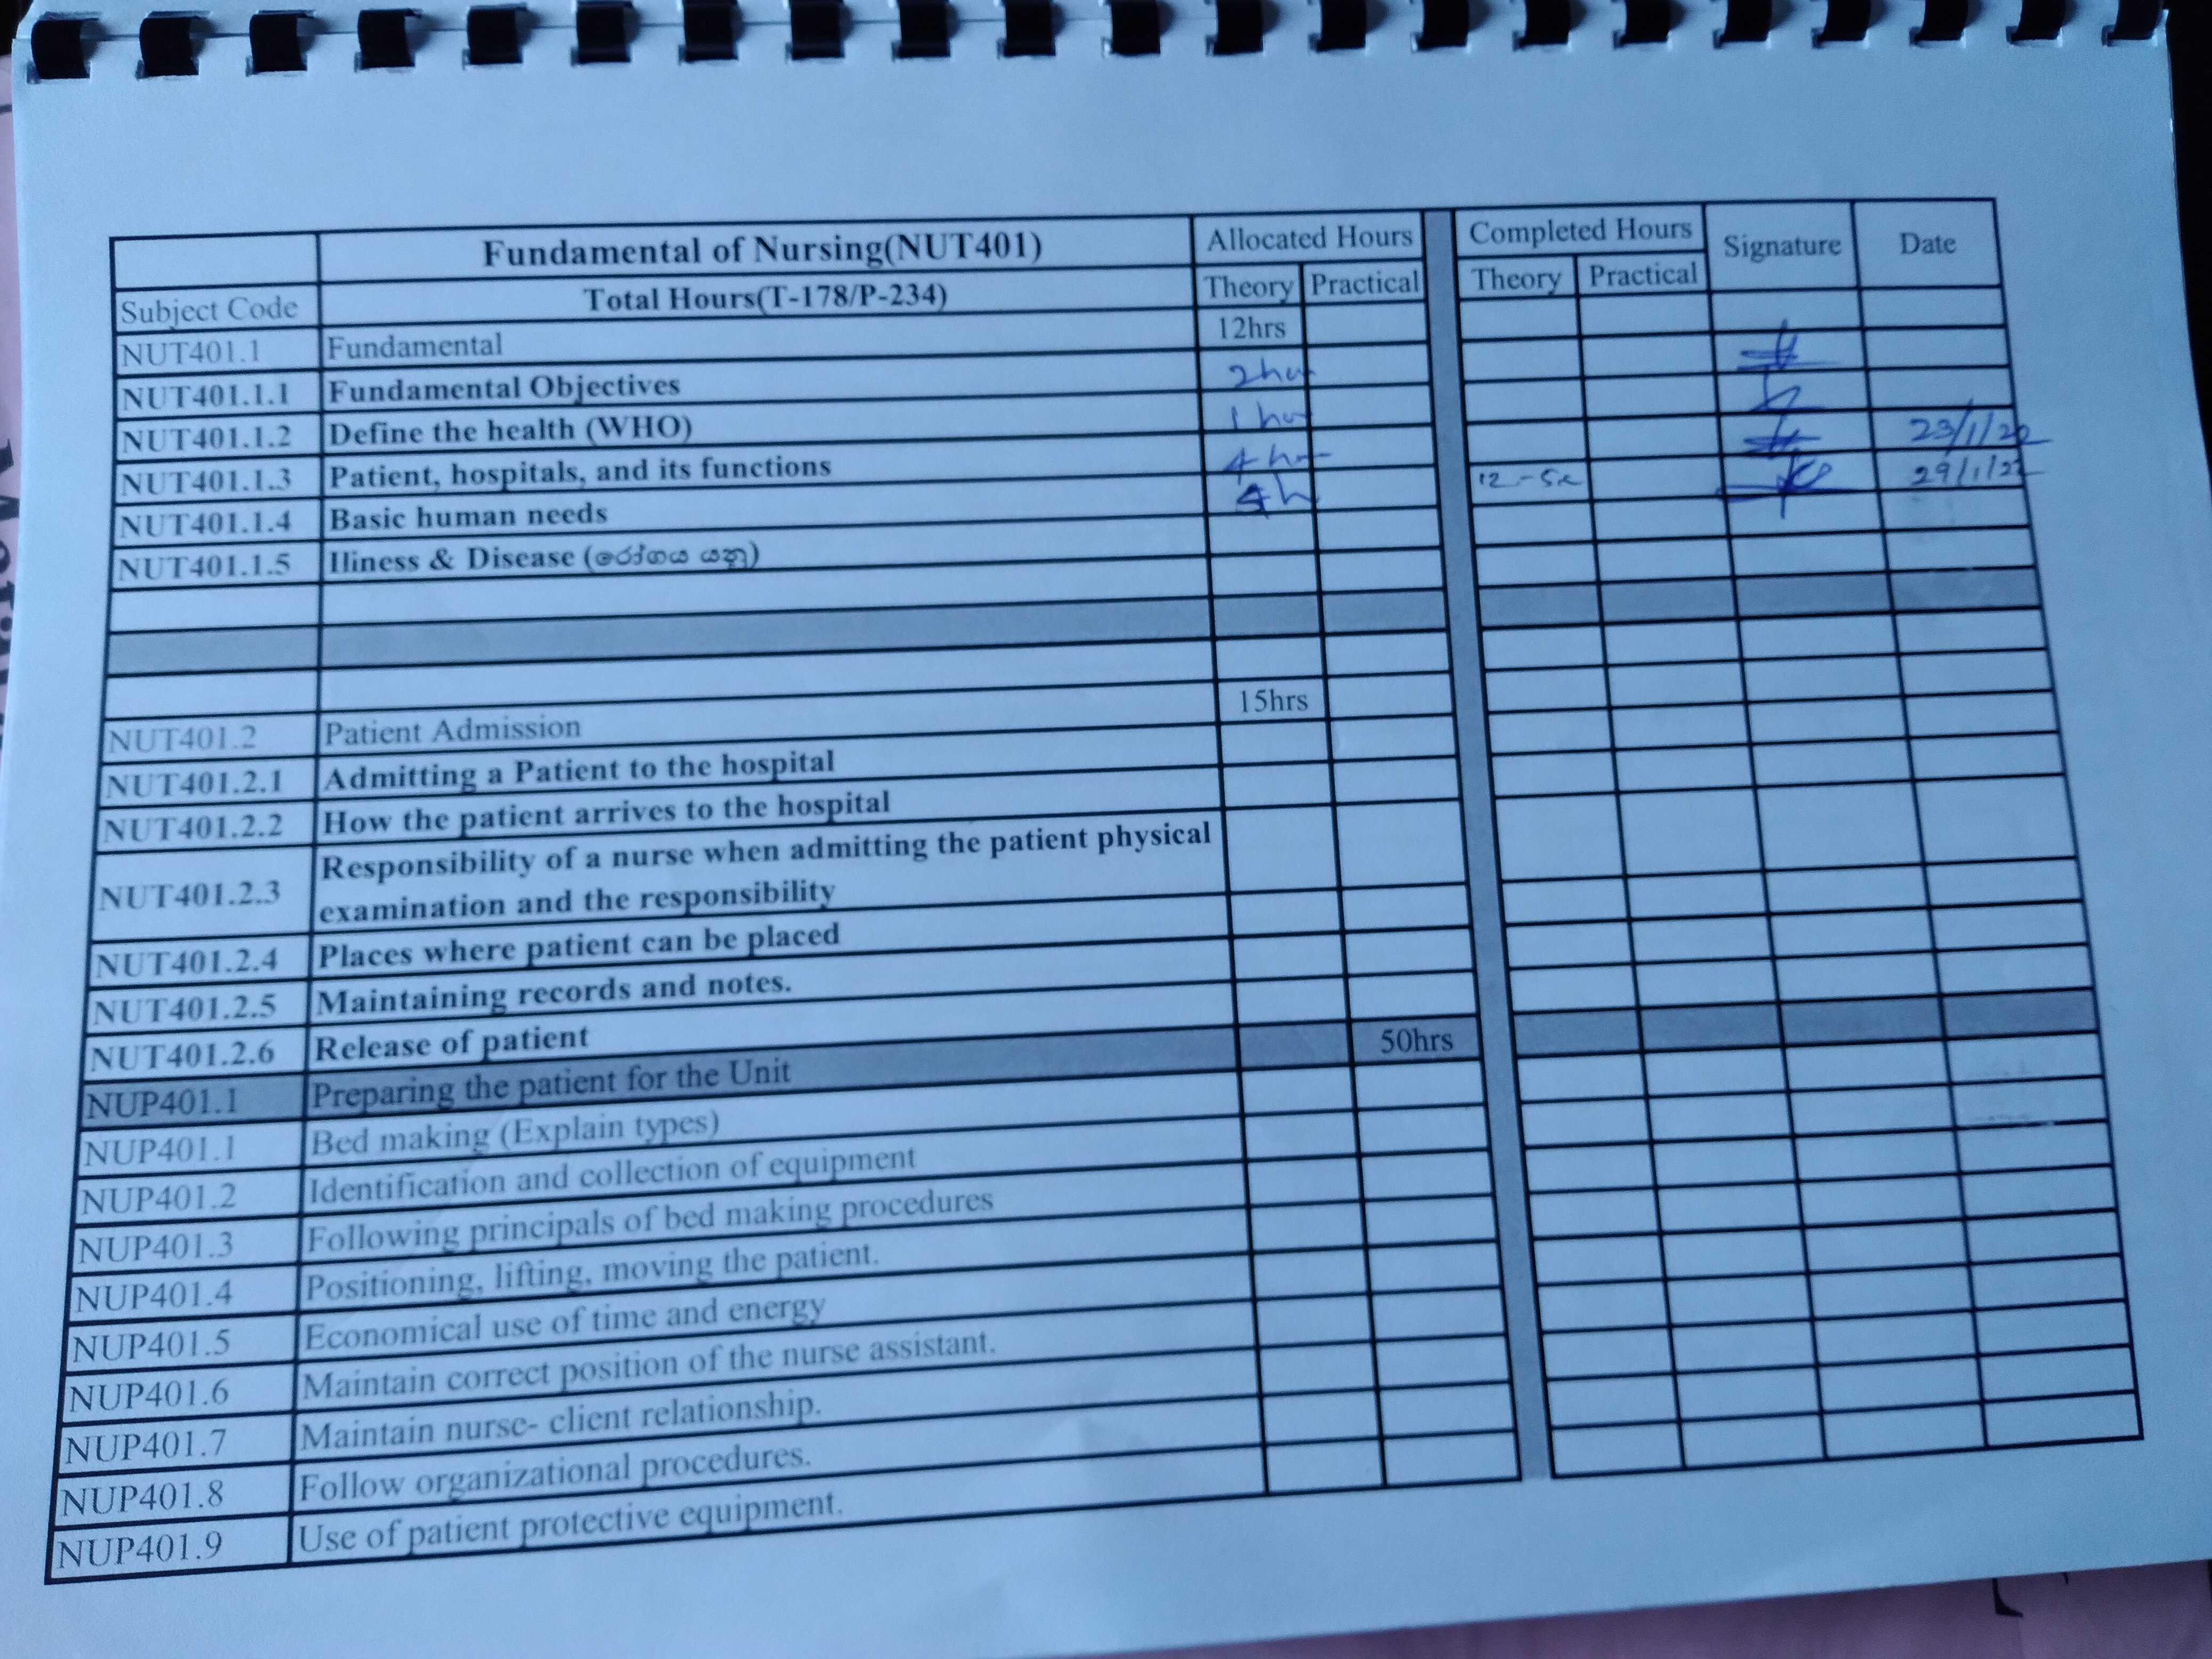 Fundamental of Nursing(NUT401) Allocated Hours Completed Hours Signature Date
Subject Code Total Hours(T-178/P-234) Theory Practical Theory Practical
NUT401.1 Fundamental 12hrs
NUT401.1.1 Fundamental Objectives 2
NUT401.1.2 Define the health (WHO) 1
NUT401.1.3 Patient, hospitals, and its functions 4 23/1/22
NUT401.1.4 Basic human needs 4h 29/1/22
NUT401.1.5 Iliness & Disease (රෝගය යනු)
NUT401.2 Patient Admission 15hrs
NUT401.2.1 Admitting a Patient to the hospital
NUT401.2.2 How the patient arrives to the hospital
NUT401.2.3 Responsibility of a nurse when admitting the patient physical
examination and the responsibility
NUT401.2.4 Places where patient can be placed
NUT401.2.5 Maintaining records and notes.
NUT401.2.6 Release of patient
NUP401.1 Preparing the patient for the Unit 50hrs
NUP401.1 Bed making (Explain types)
NUP401.2 Identification and collection of equipment
NUP401.3 Following principals of bed making procedures
NUP401.4 Positioning, lifting, moving the patient.
NUP401.5 Economical use of time and energy
NUP401.6 Maintain correct position of the nurse assistant.
NUP401.7 Maintain nurse- client relationship.
NUP401.8 Follow organizational procedures.
NUP401.9 Use of patient protective equipment.